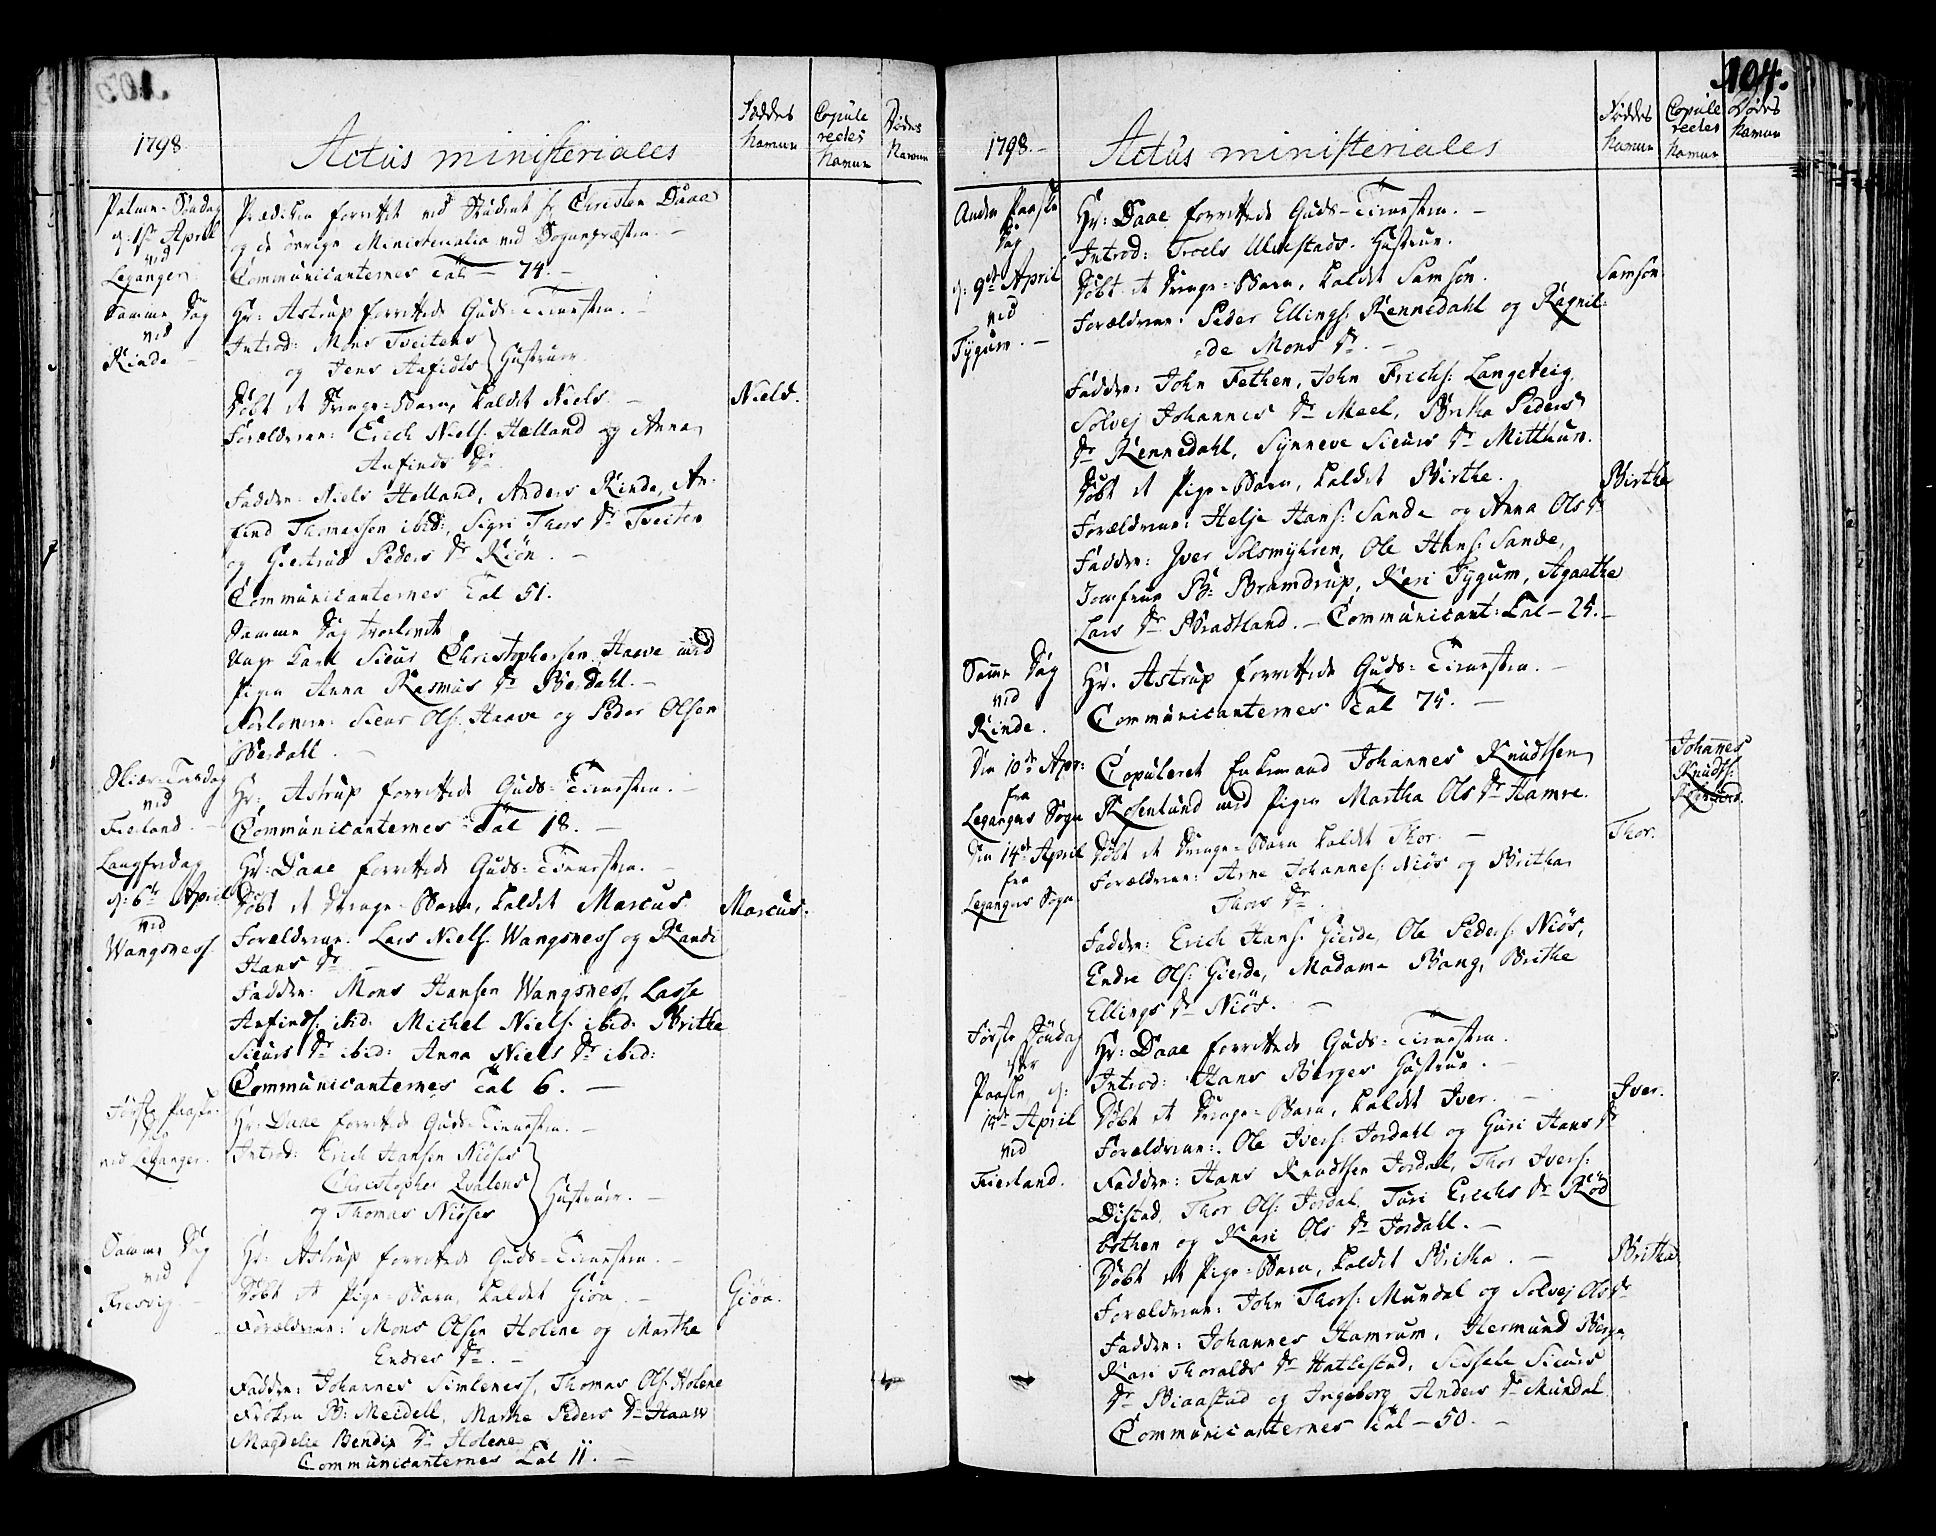 1798.
Actus ministeriales
Føddes Namne
Copuleredes Namne
Dødes Namne
Palme-Søndag d: 1ste April ved Leganger.
Prædiken forrettet ved Student hr Christen Daae
og de øvrige Ministerialia ved Sognepræsten. -
Communicanternes Tal - 74. -
Samme Dag ved Rinde -
Hr: Astrup forrettede Guds-Tienesten. -
Introd: Mons Tveitens
og Jens Anfindts } Hustruer.
Døbt et Drenge-Barn, kaldet Niels. -
Niels.
Forældrene: Erich Niels: Hælland og Anna
Anfinds Dr.
Faddere: Niels Helland, Anders Rinde, An-
find Thomassen ibid:, Sigri Thors Dr Tveiten
og Giertrud Peders Dr Riön. -
Communicanternes Tal 51.
Samme Dag trolovet
Unge Karl Siur Christophersen Haave med
Pigen Anna Rasmus Dr Berdahl. -
Forlovere: Siur Ols: Haave og Peder Olsen
Berdahl. -
Skiær-Torsdag ved Fierland. -
Hr: Astrup forrettede Guds-Tienesten. -
Communicanternes Tal 18. -
Langfredag d: 6te April ved Wangsness.
Hr: Daae forrettede Guds-Tienesten. -
Døbt et Drenge-Barn, kaldet Marcus.
Marcus.
Forældrene: Lars Niels: Wangsness og Randi
Hans Dr. -
Faddere: Mons Hansen Wangsness, Lasse
Anfinds: ibid: Michel Niels: ibid: Brithe
Siurs Dr ibid: Anna Niels Dr ibid:
Communicanternes Tal 6. -
Første Paaske-Dag ved Leganger.
Hr: Daae forrettede Guds-Tienesten. -
Introd: Erich Hansen Niöses
Christopher Qvalens
og Thomas Niöses } Hustruer. -
Samme Dag ved Fresvig. -
Hr: Astrup forrettede Guds-Tienesten. -
Døbt et Pige-Barn, kaldet Giöa. -
Giöa.
Forældrene: Mons Olsen Holene og Marthe
Endres Dr. -
Faddere: Johannes Simleness, Thomas Ols: Holene
Frøken B: Meidell, Marthe Peders Dr Haave
Magdele Bendix Dr Holene
Communicanternes Tal 11. -
104.
1798. -
Actus ministeriales
Føddes Namne
Copuleredes Namne
Dødes Namne
Anden Paaske Dag d: 9de April ved Tygum. -
Hr: Daae forrettede Guds-Tienesten. -
Introd: Troels Ulvestads Hustrue.
Døbt et Drenge-Barn, kaldet Samson.
Samson
Forældrene: Peder Ellings: Rennedahl og Ragnil-
de Mons Dr. -
Faddere: John Fethen, John Erichs: Langeteig,
Solvej Johannes Dr Meel, Britha Peders
Dr Rennedahl, Synneve Siurs Dr Mitthun.
Døbt et Pige-Barn, kaldet Birthe.
Birthe
Forældrene: Helje Hans: Sande og Anna Ols Dr
Faddere: Iver Solsmyhren, Ole Hans: Sande,
Jomfrue B: Bramdrup, Kari Tygum, Agaathe
Lars Dr Bradtland. - Communicant: Tal - 25. -
Samme Dag ved Rinde.
Hr. Astrup forrettede Guds-Tienesten. -
Communicanternes Tal 75. -
Den 10de Apr: fra Legangers Sogn
Copuleret Enkemand Johannes Knudtsen
Rosenlund med Pigen Martha Ols Dr Hamre.
Johannes Knudts: Rosenlund.
Den 14de April fra Legangers Sogn
Døbt et Drenge-Barn kaldet Thor. -
Thor.
Forældrene: Arne Johannes: Niös og Britha
Thors Dr.
Faddere: Erich Hans: Gierde, Ole Peders: Niös,
Endre Ols: Gierde, Madame Bang, Brithe
Ellings Dr Niös. -
Første Søndag efter Paaske d: 15de April ved Fierland.
Hr: Daae forrettede Guds-Tienesten.
Introd: Hans Berges Hustrue. -
Døbt et Drenge-Barn, kaldet Iver. -
Iver.
Forældrene: Ole Ivers: Jordahl og Guri Hans Dr
Faddere: Hans Knudtsen Jordal, Thor Ivers:
Distad, Thor Ols: Jordal, Turi Erichs Dr Röd
bothen og Kari Ols Dr Jordahl. -
Døbt et Pige-Barn, kaldet Britha. -
Britha
Forældrene: John Thors: Mundal og Solvej Ols Dr
Faddere: Johannes Hamrum, Hermund Berge,
Kari Thoralds Dr Hatlestad, Sissele Siurs
Dr Biaastad og Ingeborg Anders Dr Mundal.
Communicanternes Tal - 50. -